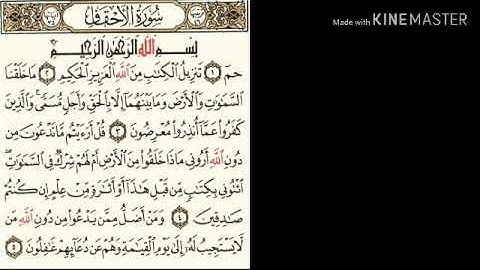 سُورَةُ الأَحْقَافِ
Made with KINEMASTER
بِسْمِ ٱللَّهِ ٱلرَّحْمَٰنِ ٱلرَّحِيمِ
حمٓ ١ تَنزِيلُ ٱلْكِتَٰبِ مِنَ ٱللَّهِ ٱلْعَزِيزِ ٱلْحَكِيمِ ٢ مَا خَلَقْنَا
ٱلسَّمَٰوَٰتِ وَٱلْأَرْضَ وَمَا بَيْنَهُمَآ إِلَّا بِٱلْحَقِّ وَأَجَلٍ مُّسَمًّى ۚ وَٱلَّذِينَ
كَفَرُوا۟ عَمَّآ أُنذِرُوا۟ مُعْرِضُونَ ٣ قُلْ أَرَءَيْتُم مَّا تَدْعُونَ مِن
دُونِ ٱللَّهِ أَرُونِى مَاذَا خَلَقُوا۟ مِنَ ٱلْأَرْضِ أَمْ لَهُمْ شِرْكٌ فِى ٱلسَّمَٰوَٰتِ ۖ
ٱئْتُونِى بِكِتَٰبٍ مِّن قَبْلِ هَٰذَآ أَوْ أَثَٰرَةٍ مِّنْ عِلْمٍ إِن كُنتُمْ
صَٰدِقِينَ ٤ وَمَنْ أَضَلُّ مِمَّن يَدْعُوا۟ مِن دُونِ ٱللَّهِ مَن
لَّا يَسْتَجِيبُ لَهُۥٓ إِلَىٰ يَوْمِ ٱلْقِيَٰمَةِ وَهُمْ عَن دُعَآئِهِمْ غَٰفِلُونَ ٥